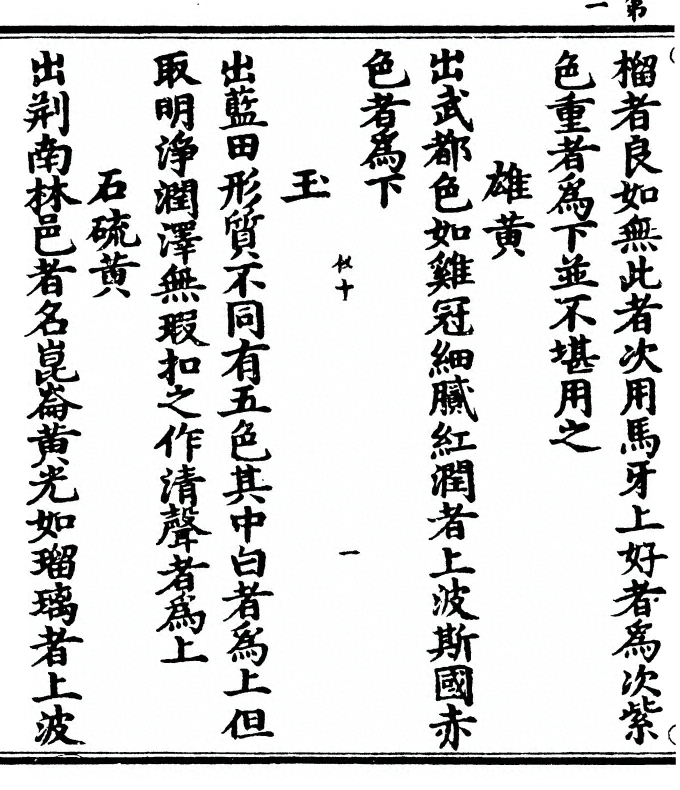 第一
榴者良如無此者次用馬牙上好者爲次紫
色重者爲下並不堪用之
雄黄
出武都色如雞冠細膩紅潤者上波斯國赤
色者爲下
似十
一
玉
出藍田形質不同有五色其中白者爲上但
取明淨潤澤無瑕扣之作清聲者爲上
石硫黄
出荆南林邑者名崑崙黄光如瑠璃者上波